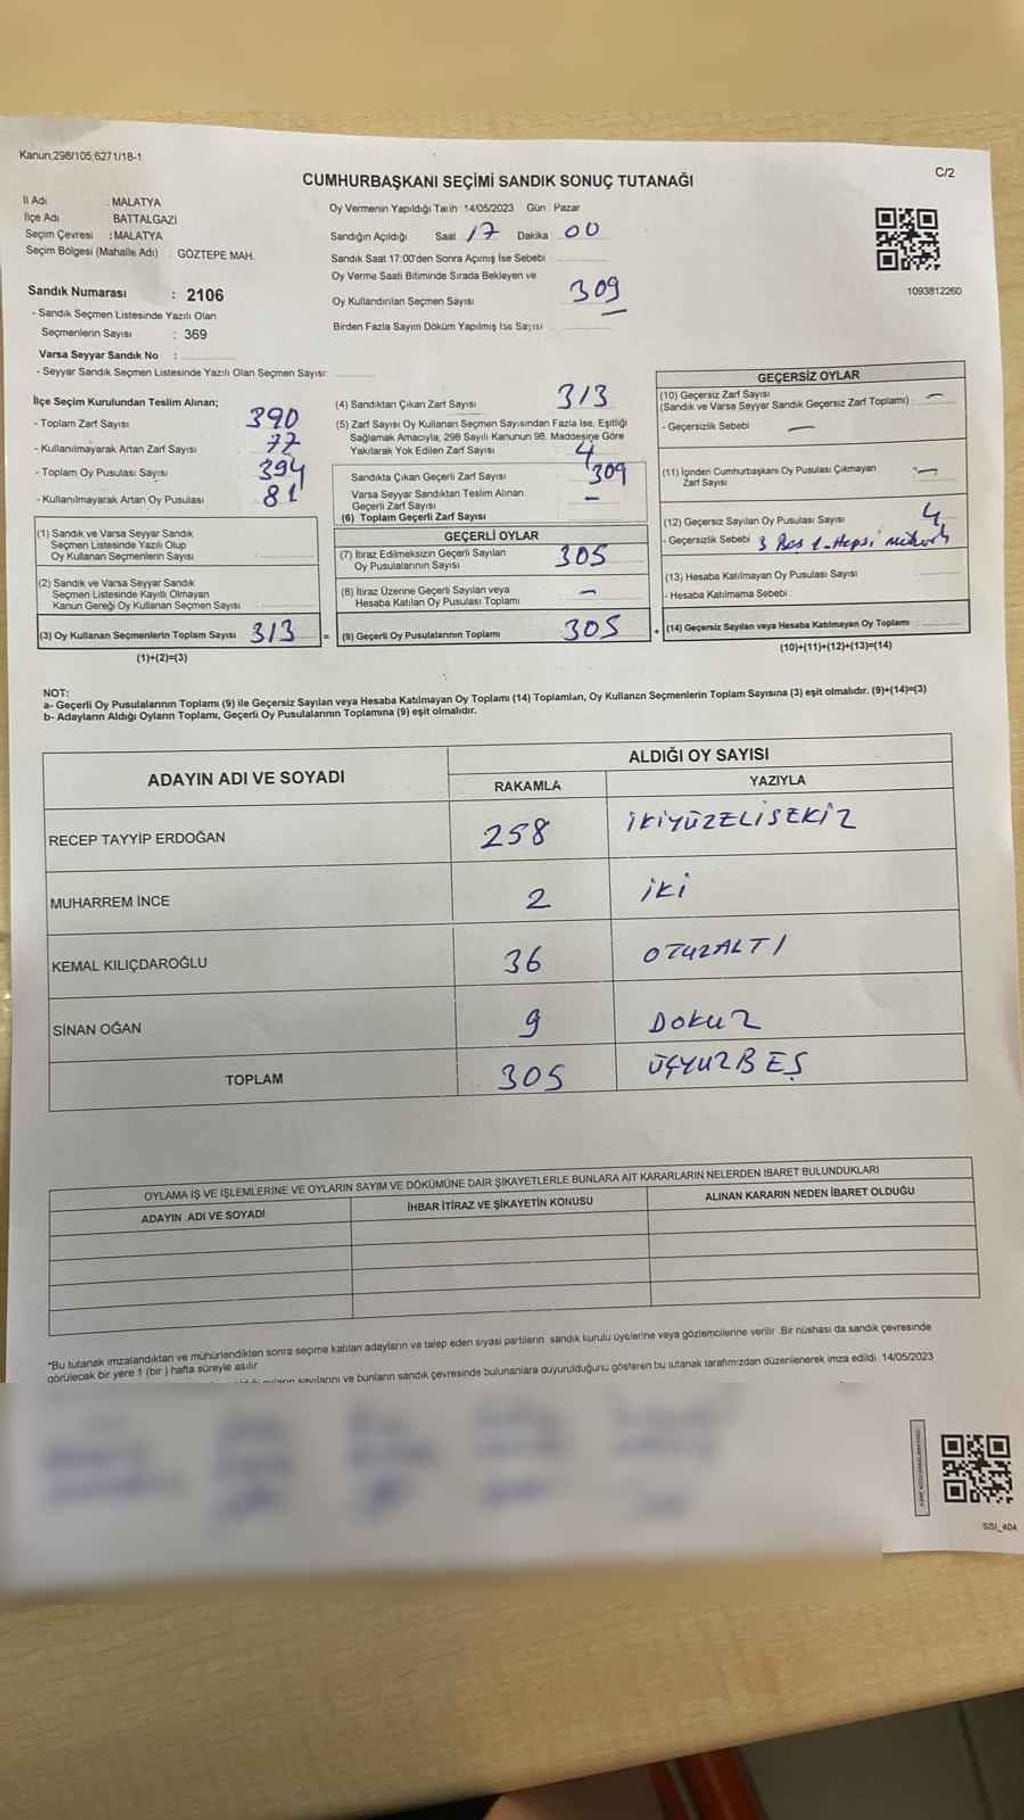 Kanun;298/105;6271/18-1
C/2
CUMHURBAŞKANI SEÇİMİ SANDIK SONUÇ TUTANAĞI
İl Adı : MALATYA
İlçe Adı BATTALGAZİ
Seçim Çevresi : MALATYA
Seçim Bölgesi (Mahalle Adı) GÖZTEPE MAH.
Sandık Numarası : 2106
- Sandık Seçmen Listesinde Yazılı Olan
Seçmenlerin Sayısı : 369
Varsa Seyyar Sandık No :
- Seyyar Sandık Seçmen Listesinde Yazılı Olan Seçmen Sayısı:
Oy Vermenin Yapıldığı Tarih 14/05/2023 Gün : Pazar
Sandığın Açıldığı Saat 17 Dakika 00
Sandık Saat 17:00'den Sonra Açımış İse Sebebi
Oy Verme Saati Bitiminde Sırada Bekleyen ve
Oy Kullandırılan Seçmen Sayısı 309
Birden Fazla Sayım Döküm Yapılmış İse Sayısı
1093812260
İlçe Seçim Kurulundan Teslim Alınan;
- Toplam Zarf Sayısı 390
- Kullanılmayarak Artan Zarf Sayısı 77
- Toplam Oy Pusulası Sayısı 394
- Kullanılmayarak Artan Oy Pusulası 81
(1) Sandık ve Varsa Seyyar Sandık
Seçmen Listesinde Yazılı Olup
Oy Kullanan Seçmenlerin Sayısı
(2) Sandık ve Varsa Seyyar Sandık
Seçmen Listesinde Kayıtlı Olmayan
Kanun Gereği Oy Kullanan Seçmen Sayısı
(3) Oy Kullanan Seçmenlerin Toplam Sayısı 313 =
(1)+(2)=(3)
(4) Sandıktan Çıkan Zarf Sayısı 313
(5) Zarf Sayısı Oy Kullanan Seçmen Sayısından Fazla İse, Eşitliği
Sağlamak Amacıyla, 298 Sayılı Kanunun 98. Maddesine Göre
Yakılarak Yok Edilen Zarf Sayısı 4
Sandıkta Çıkan Geçerli Zarf Sayısı 309
Varsa Seyyar Sandıktan Teslim Alınan
Geçerli Zarf Sayısı –
(6) Toplam Geçerli Zarf Sayısı
GEÇERLİ OYLAR
(7) İtiraz Edilmeksizin Geçerli Sayılan
Oy Pusulalarının Sayısı 305
(8) İtiraz Üzerine Geçerli Sayılan veya
Hesaba Katılan Oy Pusulası Toplamı –
(9) Geçerli Oy Pusulalarının Toplamı 305 +
GEÇERSİZ OYLAR
(10) Geçersiz Zarf Sayısı
(Sandık ve Varsa Seyyar Sandık Geçersiz Zarf Toplamı) –
- Geçersizlik Sebebi –
(11) İçinden Cumhurbaşkanı Oy Pusulası Çıkmayan
Zarf Sayısı –
(12) Geçersiz Sayılan Oy Pusulası Sayısı 4
- Geçersizlik Sebebi 3 Boş 1-Hepsi mühürlü
(13) Hesaba Katılmayan Oy Pusulası Sayısı
- Hesaba Katılmama Sebebi :
(14) Geçersiz Sayılan veya Hesaba Katılmayan Oy Toplamı
(10)+(11)+(12)+(13)=(14)
NOT:
a- Geçerli Oy Pusulalarının Toplamı (9) ile Geçersiz Sayılan veya Hesaba Katılmayan Oy Toplamı (14) Toplamları, Oy Kullanan Seçmenlerin Toplam Sayısına (3) eşit olmalıdır. (9)+(14)=(3)
b- Adayların Aldığı Oyların Toplamı, Geçerli Oy Pusulalarının Toplamına (9) eşit olmalıdır.
ADAYIN ADI VE SOYADI
ALDIĞI OY SAYISI
RAKAMLA YAZIYLA
RECEP TAYYİP ERDOĞAN 258 İKİYÜZELİSEKİZ
MUHARREM İNCE 2 İKİ
KEMAL KILIÇDAROĞLU 36 OTUZALTI
SİNAN OĞAN 9 DOKUZ
TOPLAM 305 ÜÇYUZBEŞ
OYLAMA İŞ VE İŞLEMLERİNE VE OYLARIN SAYIM VE DÖKÜMÜNE DAİR ŞİKAYETLERLE BUNLARA AİT KARARLARIN NELERDEN İBARET BULUNDUKLARI
ADAYIN ADI VE SOYADI İHBAR İTİRAZ VE ŞİKAYETİN KONUSU ALINAN KARARIN NEDEN İBARET OLDUĞU
*Bu tutanak imzalandıktan ve mühürlendikten sonra seçime katılan adayların ve talep eden siyasi partilerin sandık kurulu üyelerine veya gözlemcilerine verilir. Bir nüshası da sandık çevresinde
görülecek bir yere 1 (bir ) hafta süreyle asılır
sayılarını ve bunların sandık çevresinde bulunanlara duyurulduğunu gösteren bu tutanak tarafımızdan düzenlenerek imza edildi. 14/05/2023
SSI_404